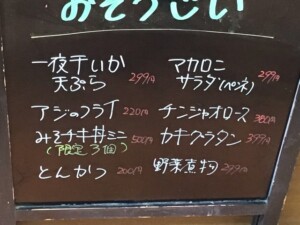 おそうじい
一夜干いか
天ぷら 299円
アジのフライ 220円
みそチキ丼ミニ 500円
(限定3個)
とんかつ 200円
マカロニ
サラダ(ペンネ) 299円
チンジャオロース 380円
カキグラタン 399円
野菜煮物 299円